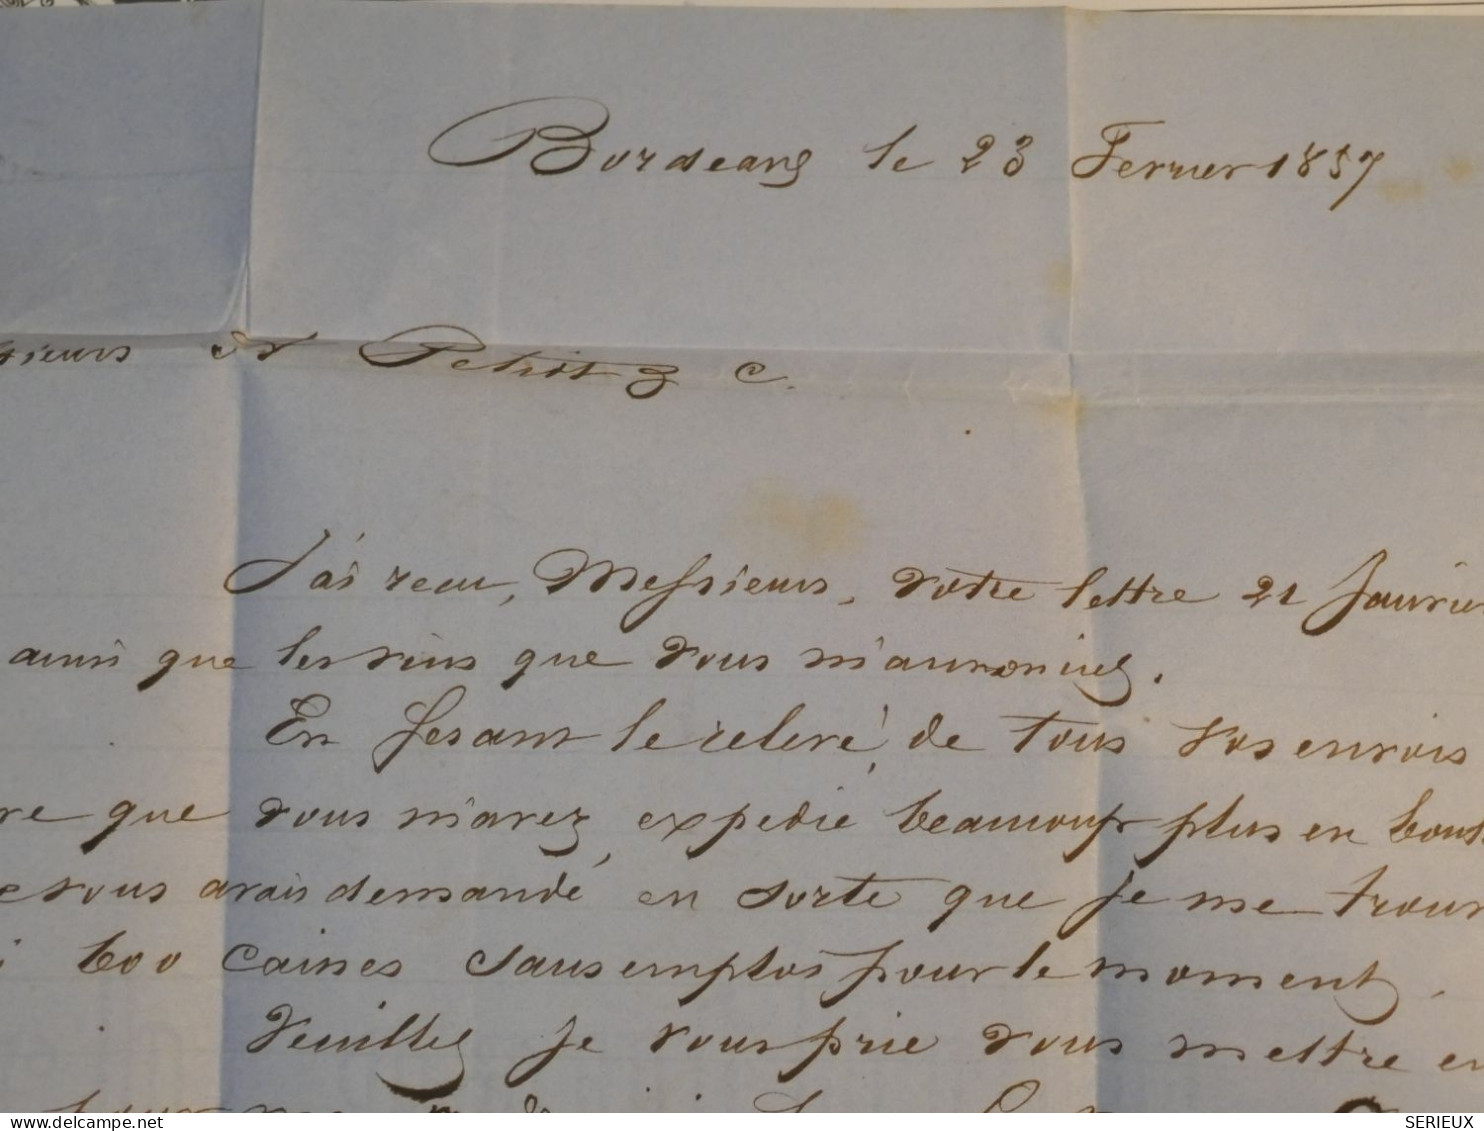 Bordeaux le 23 Fevrier 1857
sieurs Petiot & C.
J'ai recu, Messieurs, votre lettre 21 Janvier
ainsi que les vins que vous m'annonciez.
En fesant le relevé, de tous vos envois
re que vous m'avez expedié beaucoup plus en
e vous avais demandé, en sorte que je me trouv
i 600 caisses sans emplois pour le moment.
Veuillez je vous prie vous mettre en
delcampe.net
SERIEUX